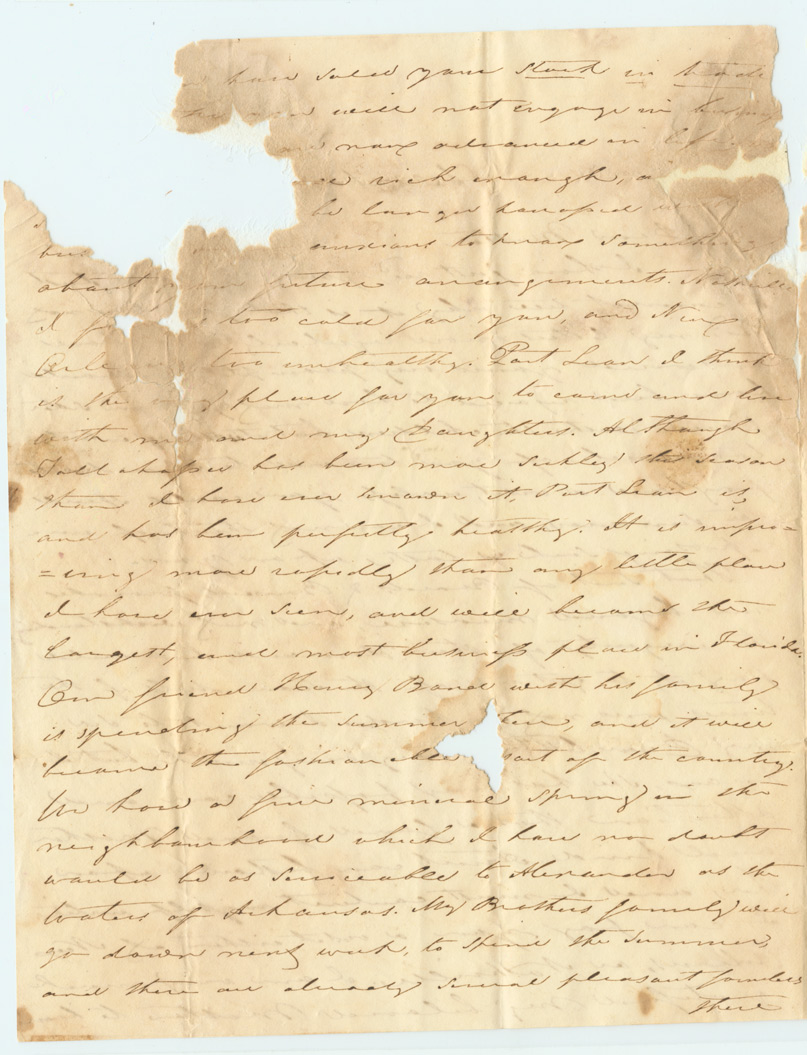 have soled your stock in trade
will not engage in
now advanced in life.
rich enough,
be longer harassed
anxious to know something
about future arrangements.
I too cold for you, and New
too unhealthy. Port Lean I think
is the place for you to come and live
with me and my Daughters. Although
Tallahassee has been more sickly this season
than I have ever known it, Port Lean is,
and has been perfectly healthy. It is impro=
=ving more rapidly than any little place
I have ever seen, and will become the
largest, and most business place in Florida.
Our friend Henry Bond with his family
is spending the summer, and it will
become the fashionable of the country.
We have a fine mineral spring in the
neighbourhood which I have no doubt
would be as serviceable to Alexander as the
Waters of Arkansas. My Brothers family will
go down next week, to spend the summer,
and there are already several pleasant families
there